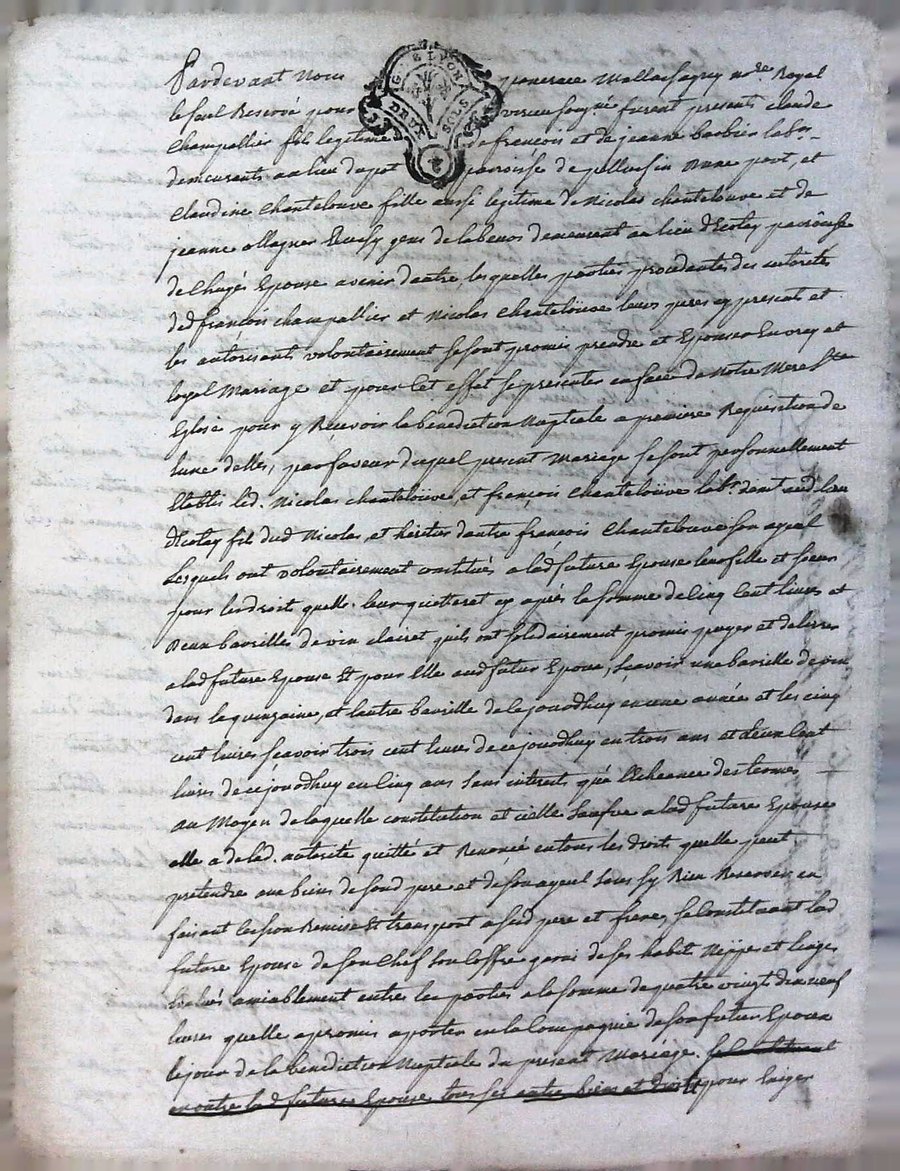 Pardevant Nous
G. DE LYON
DEUX SOLS
nore Royal
le seul Reservé pour furent presents claude
Champallier fils legitime de francois et de jeanne barbier labrs
demeurants au lieu du pot parroisse de pellussin d'une part, et
Claudine Chantelouve fille aussi legitime de Nicolas chantelouve et de
jeanne ollagner gens de labeurs demeurant au lieu d'Ecotay parroisse
de Chuyés Epouse avenir d'autre, lesquelles parties procedantes des autorités
desd françois champallier et Nicolas Chantelouve leurs peres cy presents et
les autorisants, volontairement se sont promis prendre et Epouser En vray et
loyal Mariage et pour cet effet se presenter en face de Notre Mere Ste
Eglise pour y Recevoir la benediction Nuptiale a premiere Requisition de
lune d'elles, par faveur duquel present Mariage se sont personnellement
Etablis led. Nicolas chantelouve, et françois Chantelouve labr demt aud lieu
d'Ecotay fils dud Nicolas, et heritier d'autre francois Chantelouve son ayeul
Lesquels ont volontairement constitués a lad future Epouse leur fille et soeur
pour les droits quelle leur quittera cy après la somme de Cinq Cent livres et
deux bareilles de vin clairet quils ont solidairement promis payer et delivrer
a lad future Epouse Et pour Elle aud futur Epoux, Sçavoir une bareille de vin
dans la quinzaine, et l'autre bareille de cejourdhuy en une année et les cinq
cent livres scavoir trois cent livres de ce jourdhuy en trois ans et deux Cent
livres de cejourdhuy en Cinq ans sans interest qu'a l'Echeance des termes
au Moyen de laquelle constitution et icelle sauve a lad future Epouse
elle a de lad. autorité quitté et Renoncé en tous les droits quelle peut
pretendre aux biens de sond pere et de son ayeul sans sy Rien Reserver en
faisant Remise Et transport a sesd pere et frere, se Constituant lad
future Epouse de son Chef son Coffre garni de ses habits Nippes et linges
Evalués amiablement entre les parties a la somme de quatre vingt dix neuf
livres quelle a promis aporter en la Compagnie de son futur Epoux
le jour de la benediction Nuptiale du present Mariage. se Constituant
en outre lad future Epouse tous ses autres biens et droits Et pour Exiger